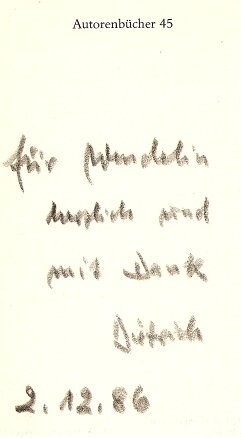 Autorenbücher 45
für Wendelin
herzlich und
mit Dank
Dietrich
2.12.86